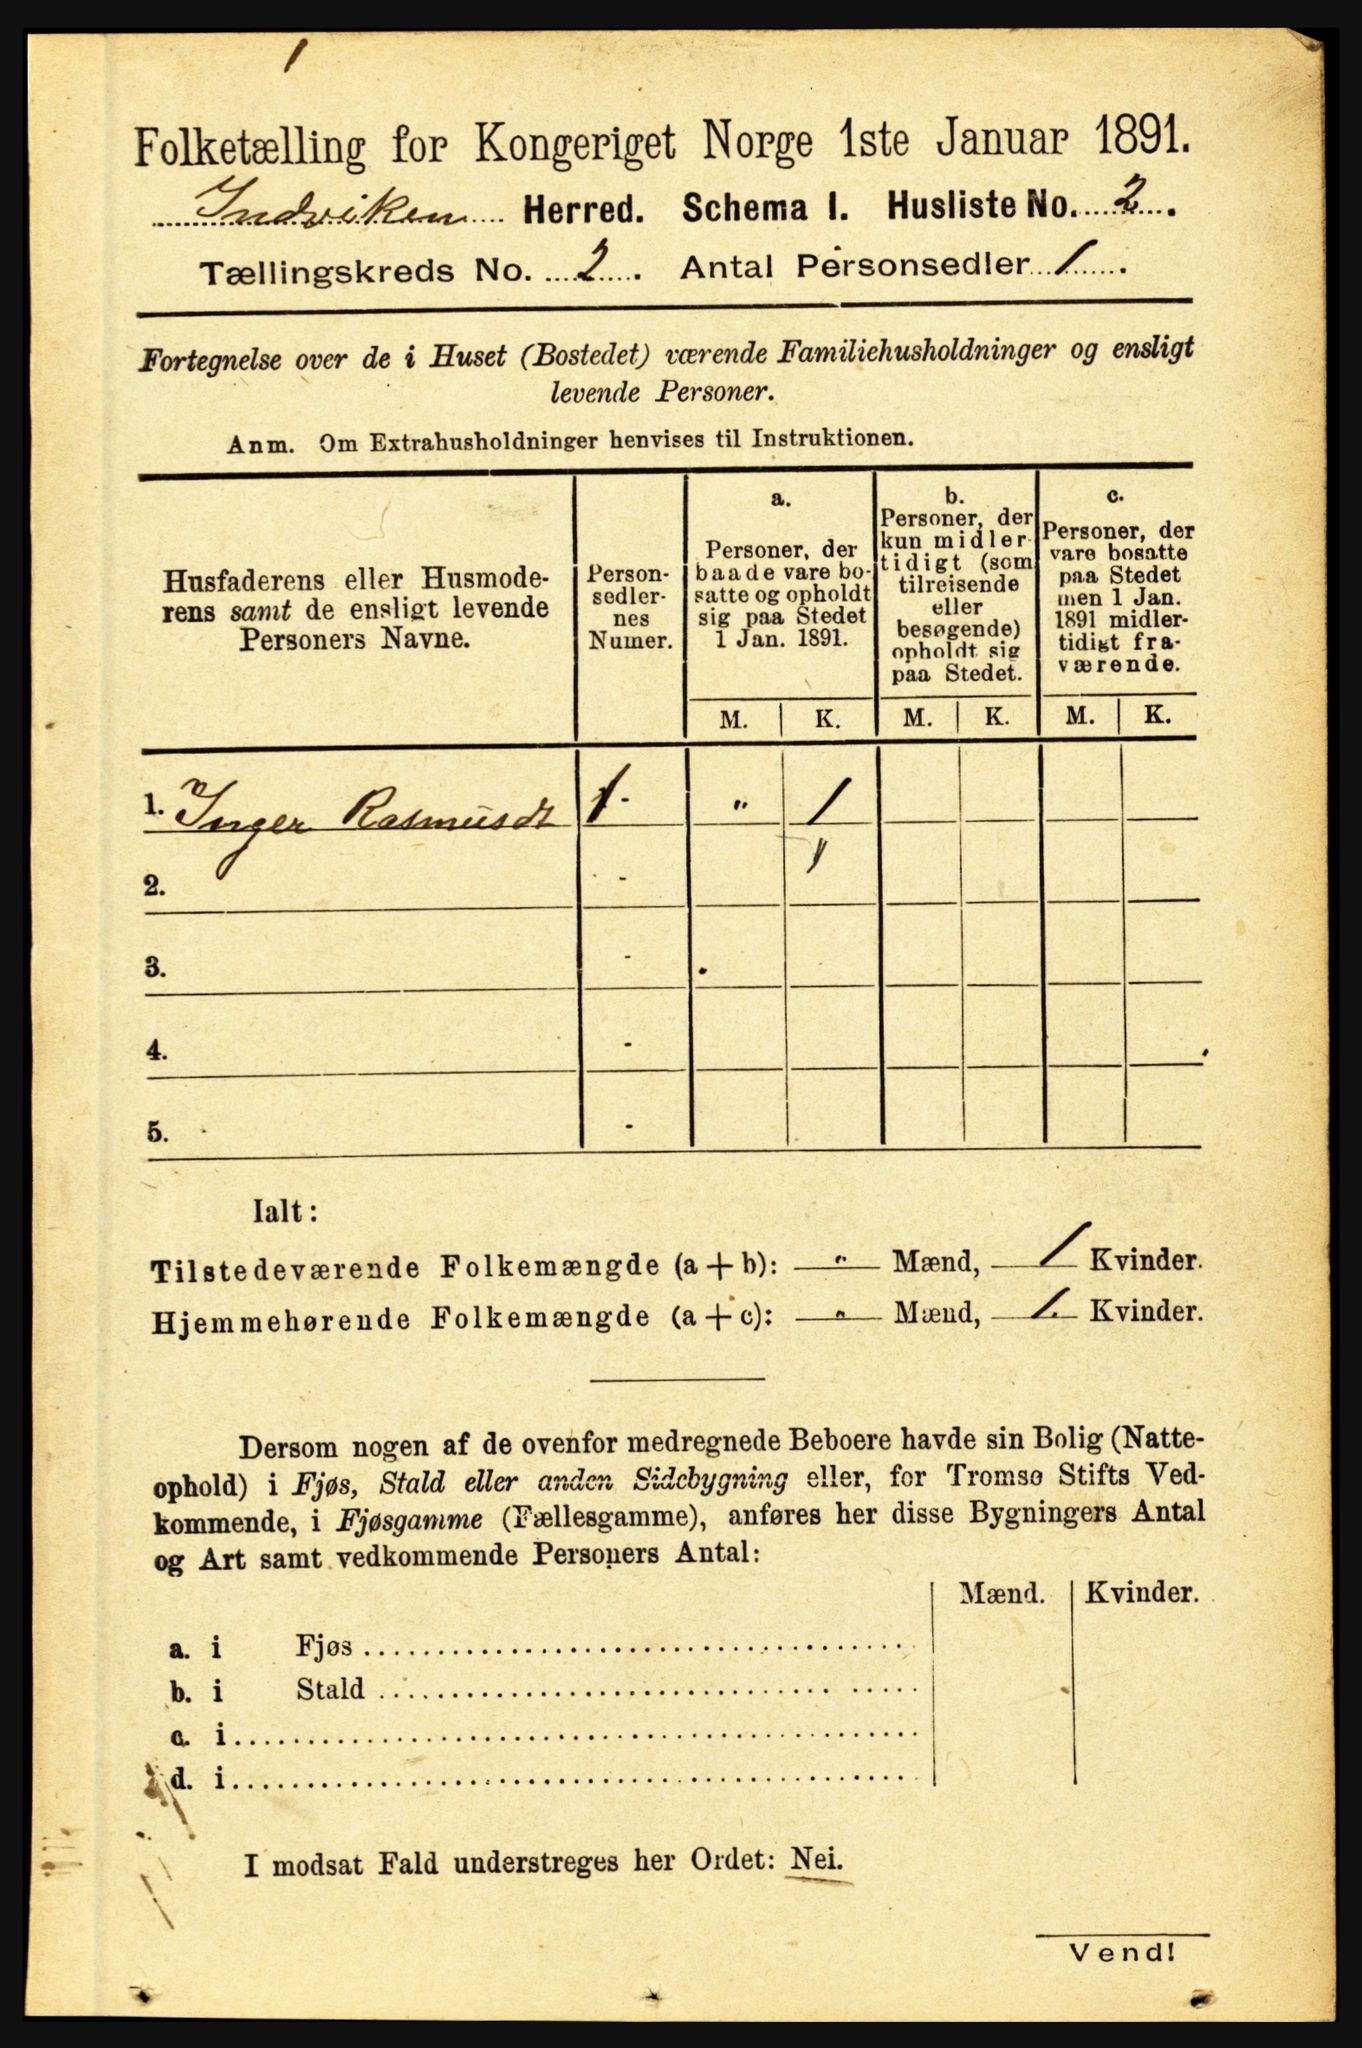 1
Folketælling for Kongeriget Norge 1ste Januar 1891.
Indviken Herred. Schema I. Husliste No. 2.
Tællingskreds No. 2. Antal Personsedler 1.
Fortegnelse over de i Huset (Bostedet) værende Familiehusholdninger og ensligt
levende Personer.
Anm. Om Extrahusholdninger henvises til Instruktionen.
Husfaderens eller Husmode-
rens samt de ensligt levende
Personers Navne.
Person-
sedler-
nes
Numer.
a.
Personer, der
baade vare bo-
satte og opholdt
sig paa Stedet
1 Jan. 1891.
b.
Personer, der
kun midler-
tidigt (som
tilreisende
eller
besøgende)
opholdt sig
paa Stedet.
c.
Personer, der
vare bosatte
paa Stedet
men 1 Jan.
1891 midler-
tidigt fra-
værende.
M. K. M. K. M. K.
1. Inger Rasmusdt 1 - " 1
2. -
3. -
4. -
5. -
Ialt:
Tilstedeværende Folkemængde (a + b): " Mænd, 1 Kvinder.
Hjemmehørende Folkemængde (a + c): " Mænd, 1. Kvinder.
Dersom nogen af de ovenfor medregnede Beboere havde sin Bolig (Natte-
ophold) i Fjøs, Stald eller anden Sidebygning eller, for Tromsø Stifts Ved-
kommende, i Fjøsgamme (Fællesgamme), anføres her disse Bygningers Antal
og Art samt vedkommende Personers Antal:
Mænd. Kvinder.
a. i Fjøs
b. i Stald
c. i
d. i
I modsat Fald understreges her Ordet: Nei.
Vend!